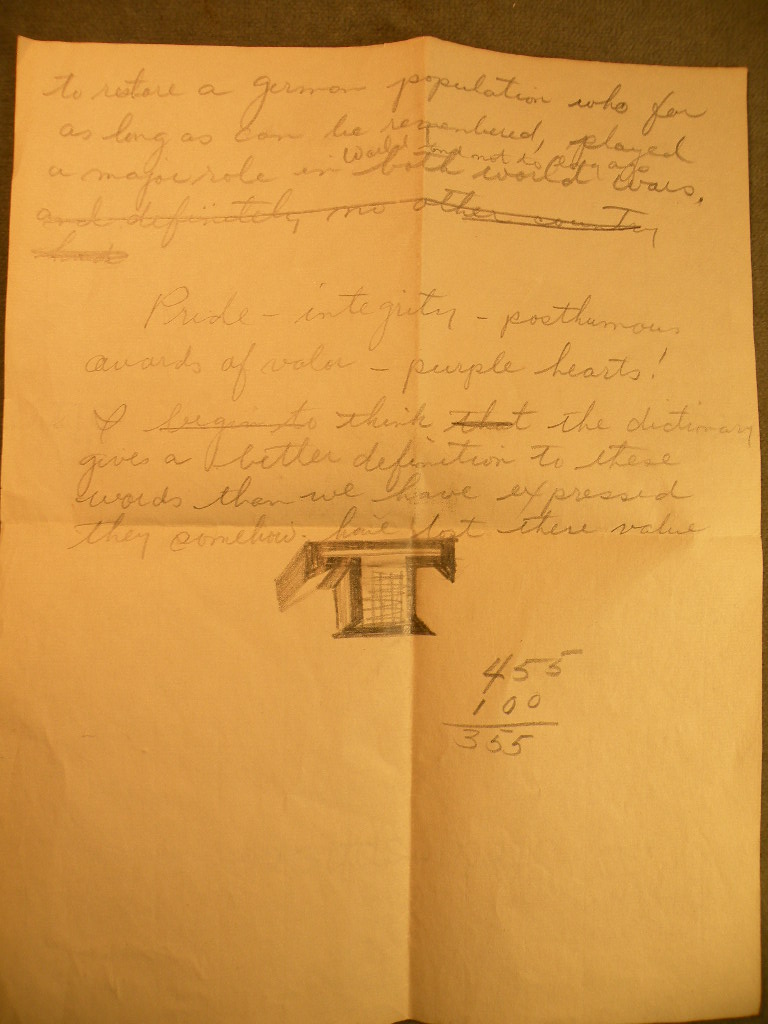 to restore a german population who for
as long as can be remembered, played
World and not to long ago
a major role in both world wars,
and definitely no other country
Pride - integrity - posthumous
awards of valor - purple hearts!
I begin to think that the dictionary
gives a better definition to these
words than we have expressed
they somehow have lost there value
455
100
355